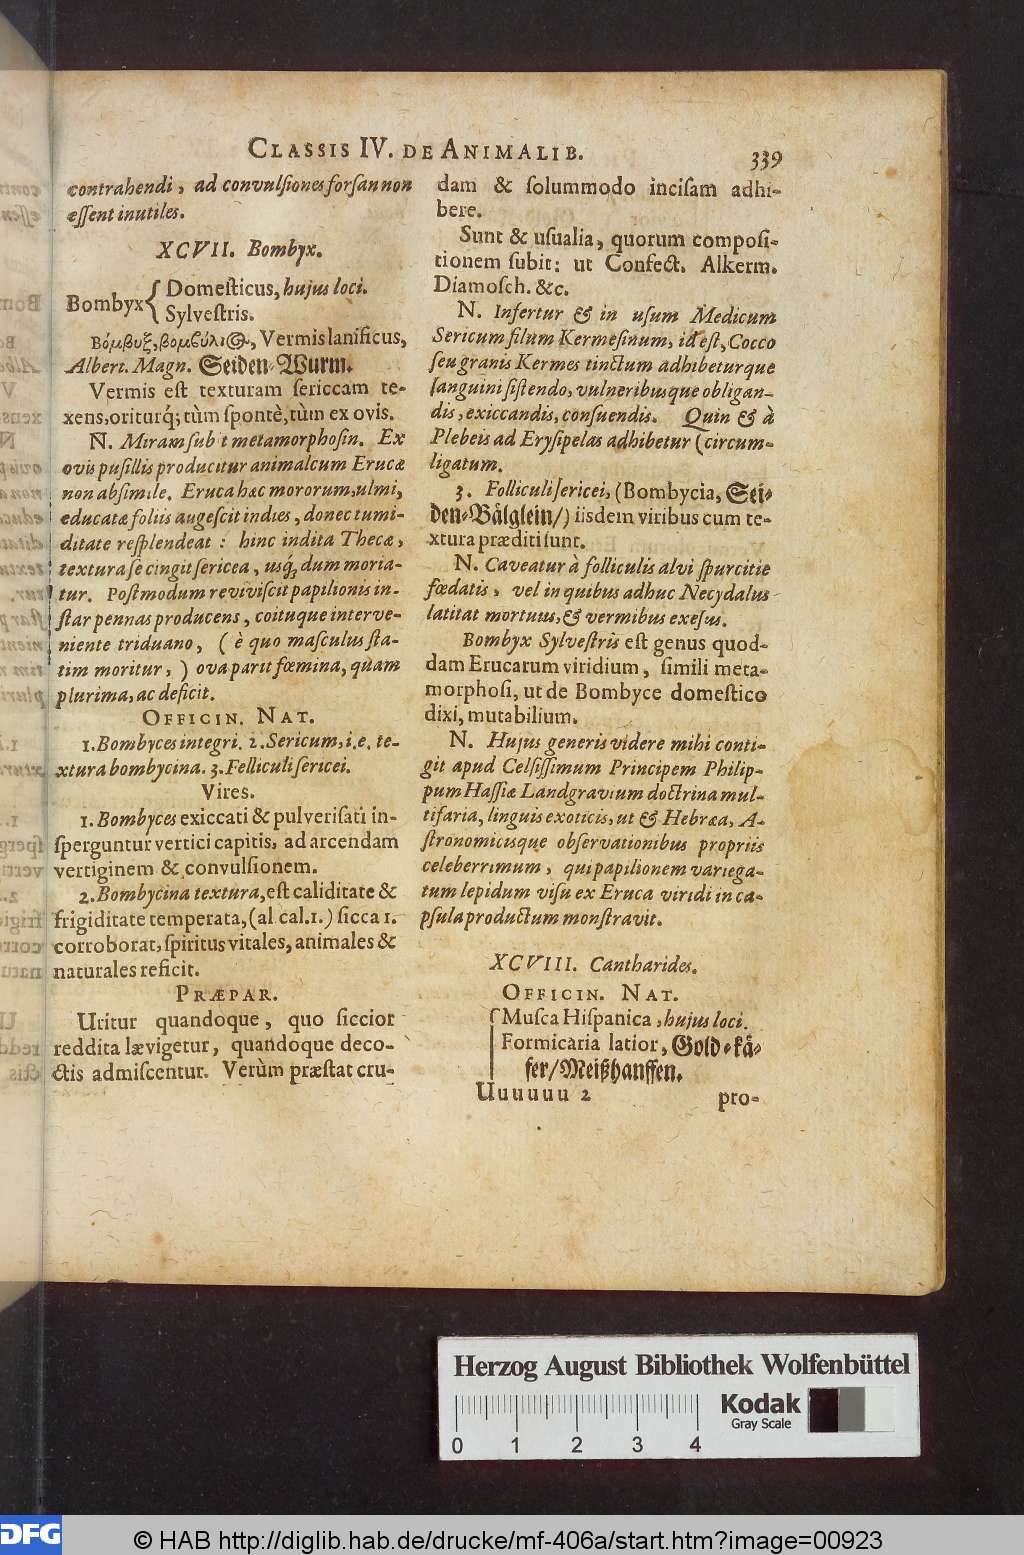 CLASSIS IV. DE ANIMALIB.
339
contrahendi, ad convulſiones forſan non
eſſent inutiles.
XCVII. Bombyx.
Bombyx { Domeſticus, hujus loci.
Sylveſtris.
Βόμβυξ, βομβύλι⊙, Vermis lanificus,
Albert. Magn. Seiden-Wurm.
Vermis eſt texturam ſericeam te-
xens, oriturq́; tùm ſpontè, tùm ex ovis.
N. Miram ſubit metamorphoſin. Ex
ovis puſillis producitur animalcum Erucæ
non abſimile. Eruca hæc mororum, ulmi,
educata foliis augeſcit indies, donec tumi-
ditate reſplendeat: hinc indita Thecæ,
textura ſe cingit ſericea, usq́, dum moria-
tur. Poſtmodum reviviſcit papilionis in-
ſtar pennas producens, coituque interve-
niente triduano, (è quo maſculus ſta-
tim moritur,) ova parit fœmina, quàm
plurima, ac deficit.
OFFICIN. NAT.
1. Bombyces integri. 2. Sericum, i.e. te-
xtura bombycina. 3. Felliculi ſericei.
Vires.
1. Bombyces exiccati & pulveriſati in-
ſperguntur vertici capitis, ad arcendam
vertiginem & convulſionem.
2. Bombycina textura, eſt caliditate &
frigiditate temperata, (al cal. 1.) ſicca 1.
corroborat, ſpiritus vitales, animales &
naturales reficit.
PRÆPAR.
Uritur quandoque, quo ſiccior
reddita lævigetur, quandoque deco-
ctis admiſcentur. Verùm præſtat cru-
dam & ſolummodo inciſam adhi-
bere.
Sunt & uſualia, quorum compoſi-
tionem ſubit: ut Confect. Alkerm.
Diamoſch. &c.
N. Inſertur & in uſum Medicum
Sericum filum Kermeſinum, id eſt, Cocco
ſeu granis Kermes tinctum adhibeturque
ſanguini ſiſtendo, vulneribusque obligan-
dis, exiccandis, conſuendis. Quin & à
Plebeis ad Eryſipelas adhibetur (circum-
ligatum.
3. Folliculi ſericei, (Bombycia, Sei-
den-Bälglein/) iisdem viribus cum te-
xtura præditi ſunt.
N. Caveatur à folliculis alvi ſpurcitie
fœdatis, vel in quibus adhuc Necydalus
latitat mortuus, & vermibus exeſus.
Bombyx Sylveſtris eſt genus quod-
dam Erucarum viridium, ſimili meta-
morphoſi, ut de Bombyce domeſtico
dixi, mutabilium.
N. Hujus generis videre mihi conti-
git apud Celſiſſimum Principem Philip-
pum Haſſiæ Landgravium doctrina mul-
tifaria, linguis exoticis, ut & Hebræa, A-
ſtronomicisque obſervationibus propriis
celeberrimum, qui papilionem variega-
tum lepidum viſu ex Eruca viridi in ca-
pſula productum monſtravit.
XCVIII. Cantharides.
OFFICIN. NAT.
Muſca Hiſpanica, hujus loci.
Formicaria latior, Gold-kä-
fer/Meißhanffen.
Uuuuuu 2
pro-
Herzog August Bibliothek Wolfenbüttel
0 1 2 3 4
Kodak
Gray Scale
DFG
© HAB http://diglib.hab.de/drucke/mf-406a/start.htm?image=00923